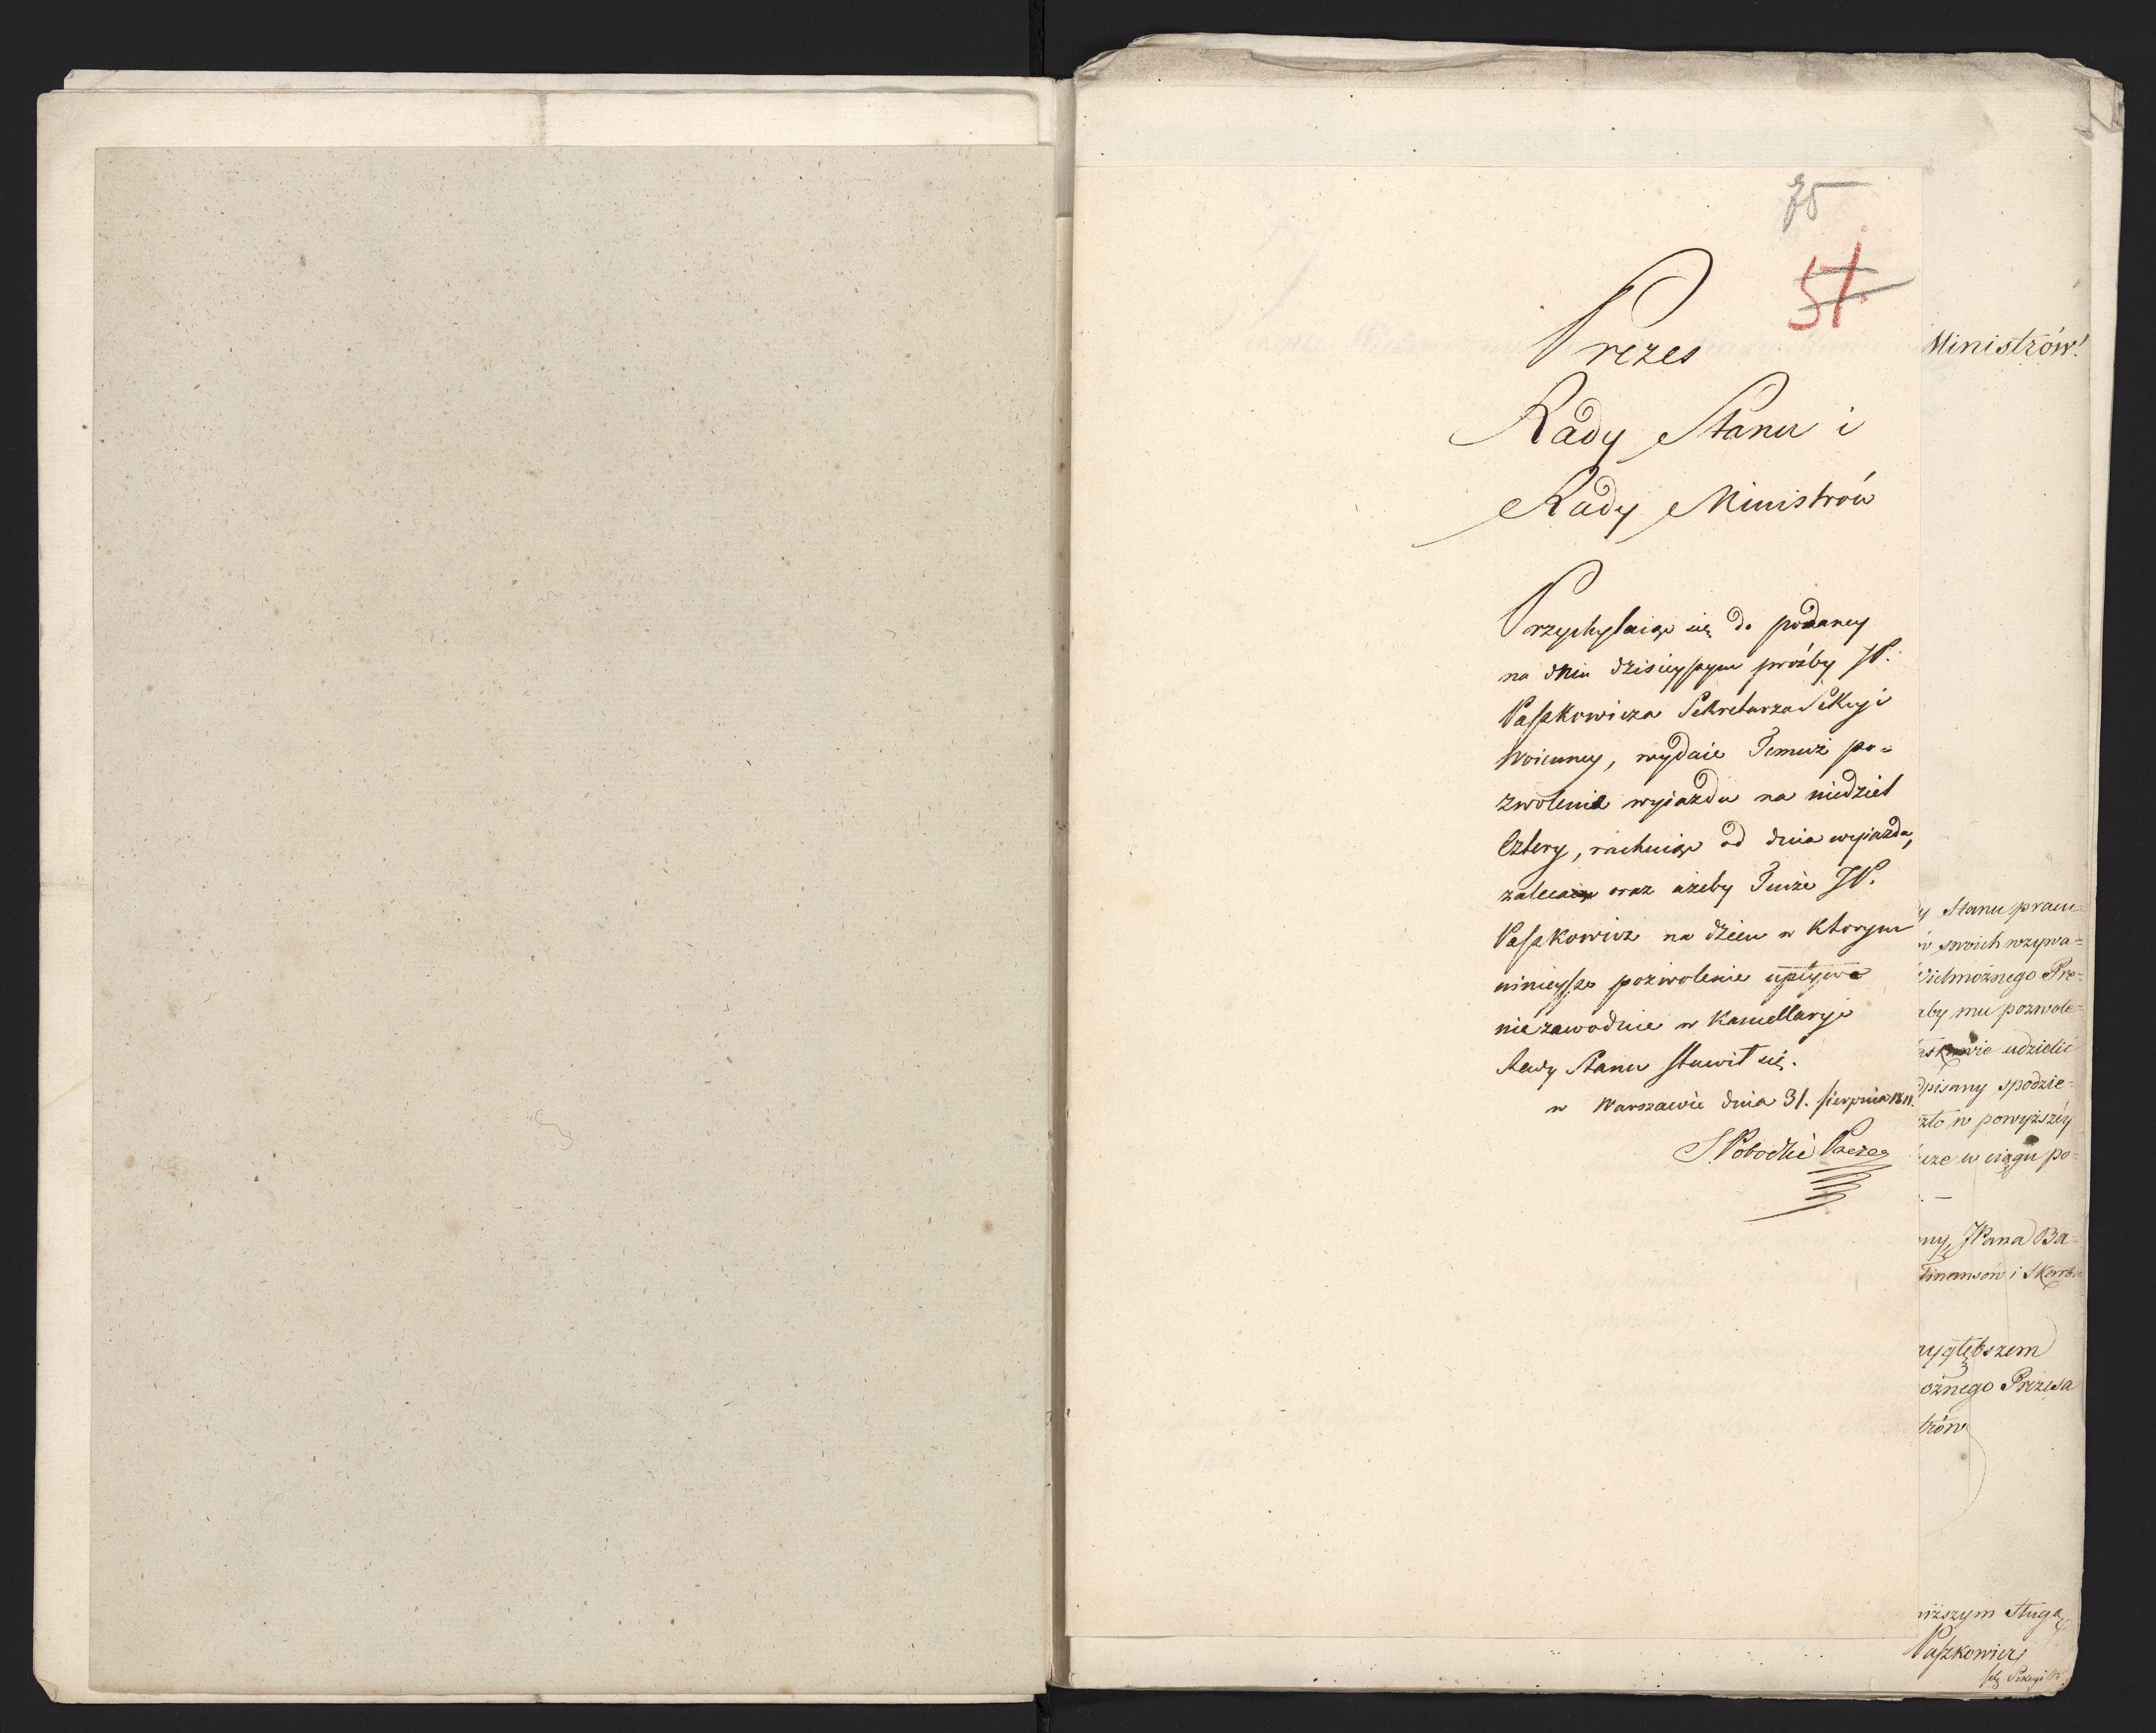 75
51.
Prezes
Rady Stanu i
Rady Ministrów
Przychylaiąc się do podaney
na dniu dzisieyszym prośby JP.
Paszkowicza Sekretarza Sekcyi
Woienney, wydaie Temuż po=
zwolenie wyiazdu na niedziel
Cztery, rachuiąc od dnia wyiazdu,
zaleca oraz ażeby Tenże JP.
Paszkowicz na dzień w ktorym
ninieysze pozwolenie upływa
niezawodnie w Kancellaryi
Rady Stanu stawił się.
w Warszawie dnia 31. sierpnia 1811.
S. Potocki Prezes
Ministrów!
y Stanu pracu
swoich wzywa=
ielmożnego Pre=
aby mu pozwole=
askawie udzielić
dpisany spodzie=
zto w powyższéy
cze w ciągu po=
. —
ny, JPana Ba=
Finansów i Skarbu
nygłębszem
ożnego Prezesa
trów
niższym sługą
Paszkowicz